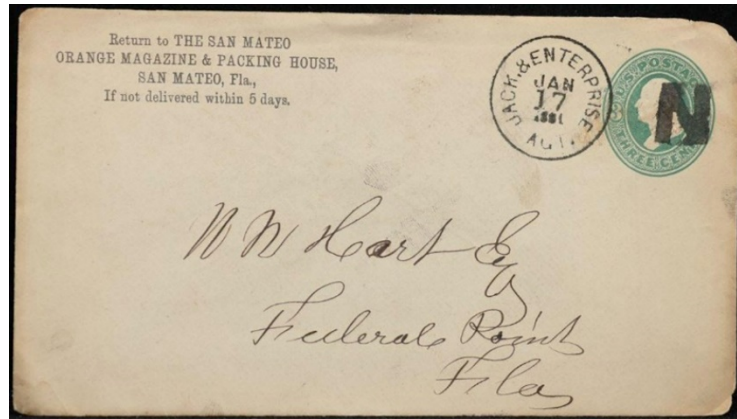 Return to THE SAN MATEO
ORANGE MAGAZINE & PACKING HOUSE,
SAN MATEO, Fla.,
If not delivered within 5 days.
JACK. & ENTERPRISE
JAN
17
AGT.
U.S. POSTAGE
THREE CENTS
N
W W Hart Esq
Federal Point
Fla